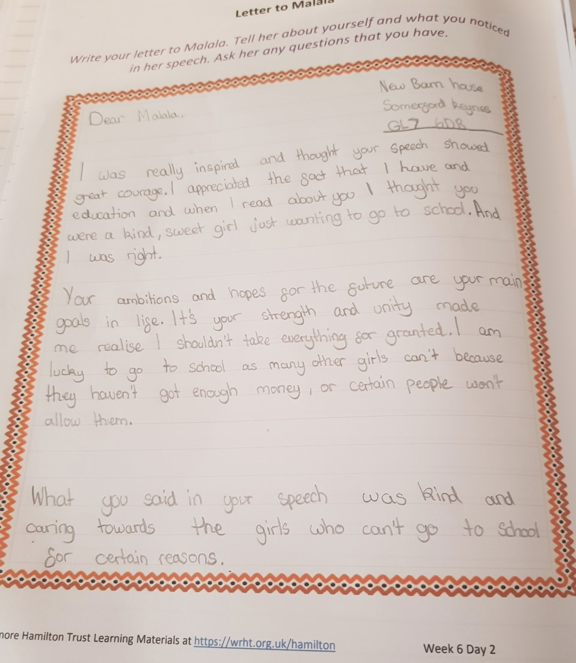 Letter to Malala
Write your letter to Malala. Tell her about yourself and what you noticed
in her speech. Ask her any questions that you have.
New Barn house
Somergord Keynes
GL7 6DB
Dear Malala,
I was really inspired and thought your speech showed
great courage. I appreciated the fact that I have and
education and when I read about you I thaught you
were a kind, sweet girl just wanting to go to school. And
I was right.
Your ambitions and hopes for the future are your main
goals in life. It's your strength and unity made
me realise I shouldn't take everything for granted. I am
lucky to go to school as many other girls can't because
they haven't got enough money, or certain people won't
allow them.
What you said in your speech was kind and
caring towards the girls who can't go to school
for certain reasons.
more Hamilton Trust Learning Materials at https://wrht.org.uk/hamilton
Week 6 Day 2